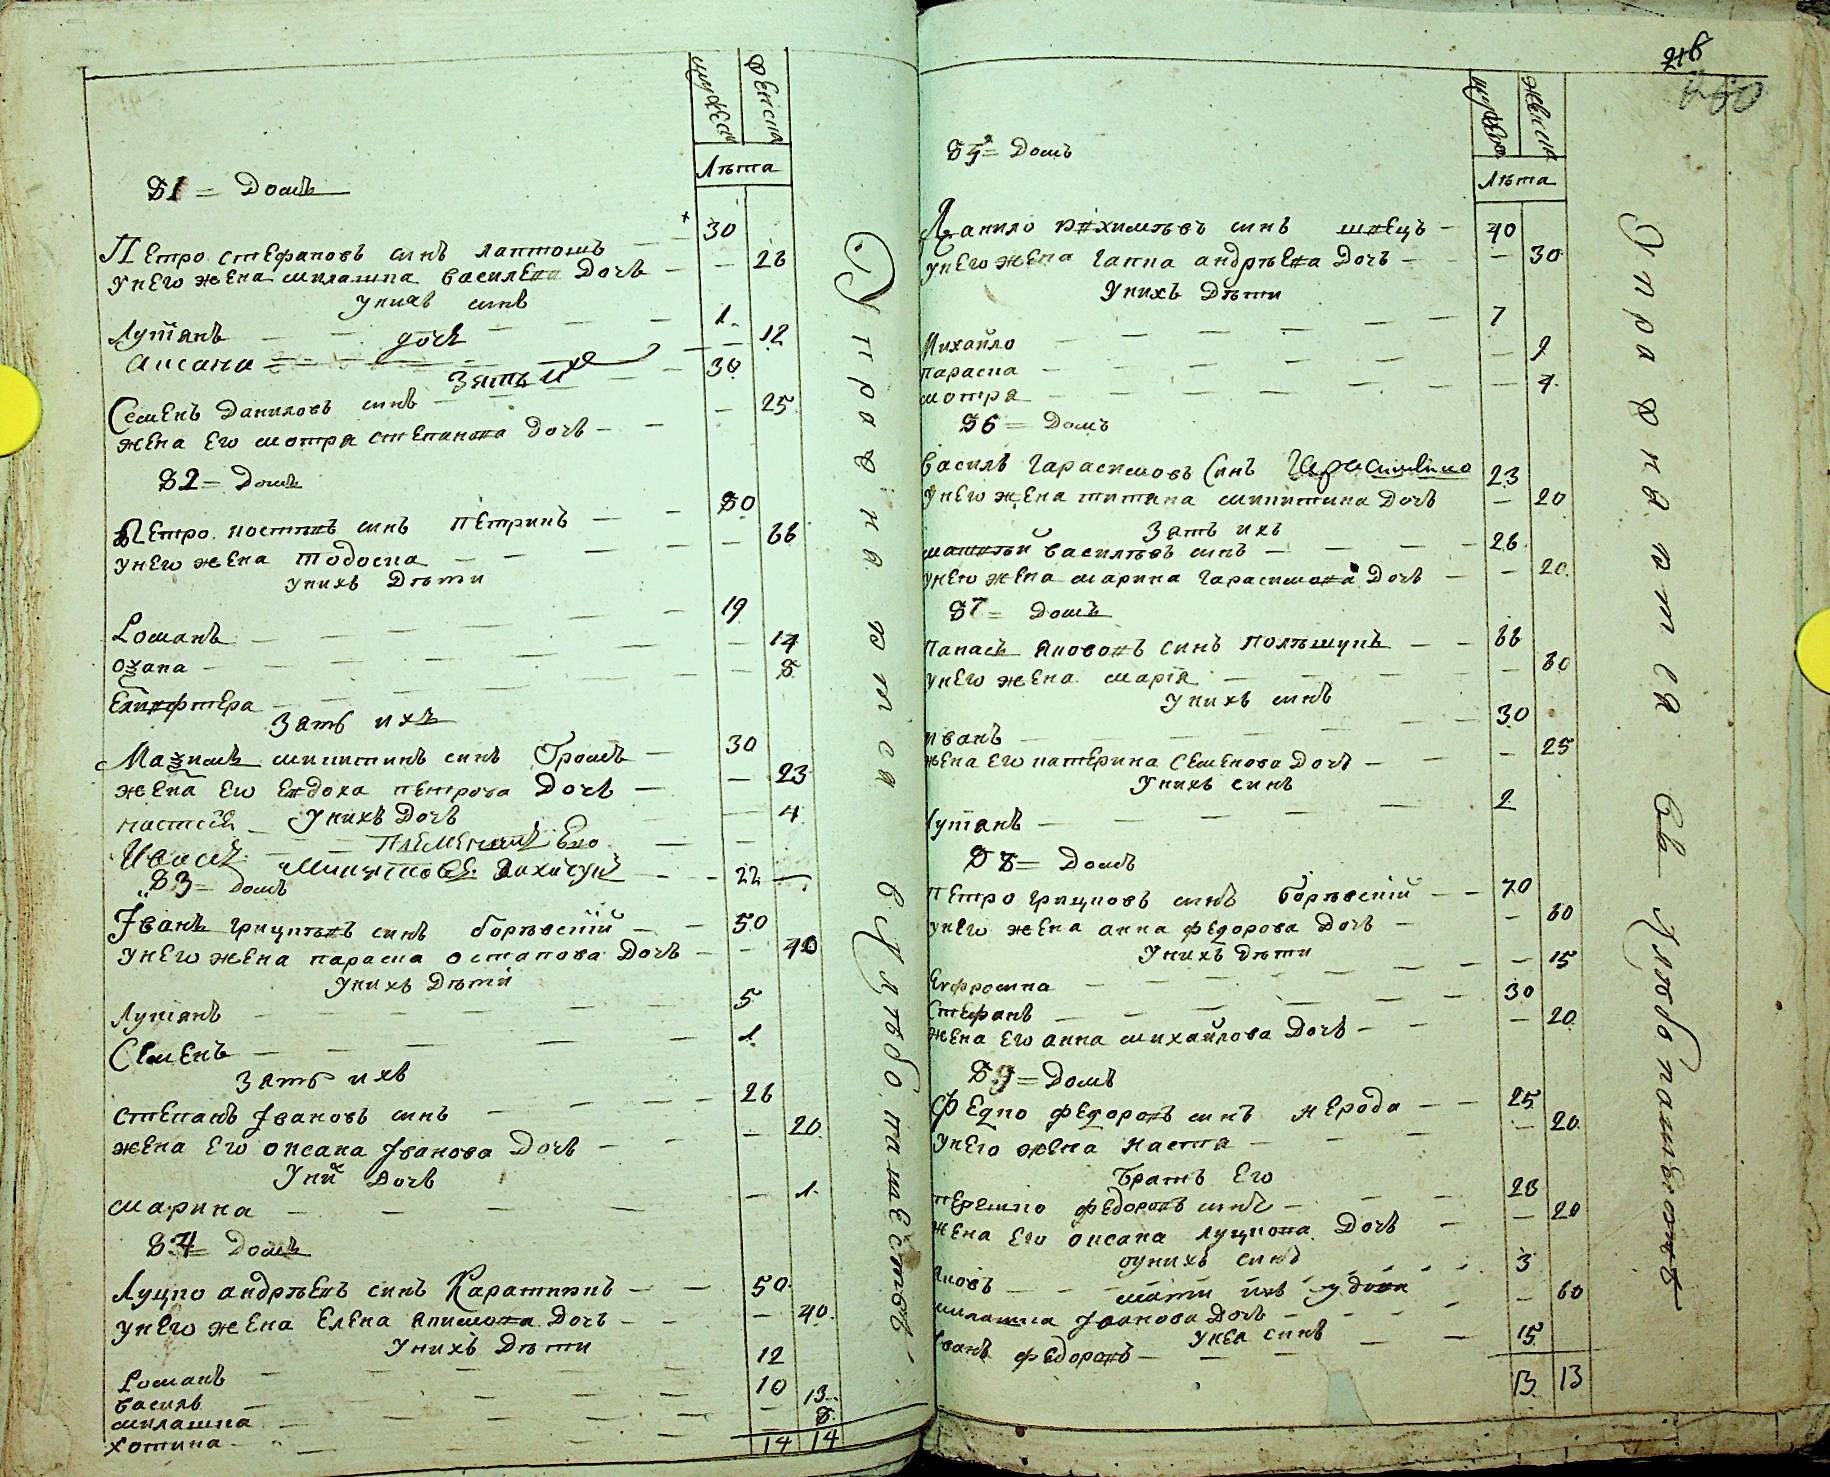 мужеска
женска
Лѣта
81 = Домъ
Петро Стефановъ синъ Лаптошъ — 30
у него жена милашка Василева дочъ — 26
у нихъ синъ
Лутянъ — 1
дочъ
Аксана — 12
Зять их
Семенъ Даниловъ синъ — 30
жена его мотря Степанова дочъ — 25
82 = Домъ
Петро Костювъ синъ Петрикъ — 80
у него жена Тодоска — 66
у нихъ дѣти
Романъ — 19
Оѯана — 14
Елифтера — 8
Зять ихъ
Маѯимъ микитинъ синъ Громъ — 30
жена его Евдоха Петрова дочъ — 23
у нихъ дочъ
настѣя — 4
племенникъ Его
Ивасъ — 22
83 = Домъ
Іванъ Грицковъ синъ боровскій — 50
у него жена параска Остапова дочъ — 40
у нихъ дѣти
Лутянъ — 5
Семенъ — 1
Зять ихъ
Степанъ Івановъ синъ — 26
жена его Оксана Іванова дочъ — 20
у них дочъ
марина — 1
84 = Домъ
Луцко андрѣевъ синъ — 50
у него жена Елена Якимова дочъ — 40
у нихъ дѣти
Романъ — 12
Василъ — 10
милашка — 13
хотина — 8
14 14
Упражняются в хлѣбопашествѣ
216
мужеска
женска
Лѣта
85 = Домъ
Данило синъ швецъ — 40
у него жена Ганна андрѣева дочъ — 30
у нихъ дѣти
Михайло — 7
параска — 9
мотря — 4
86 = Домъ
Василъ Гарасимовъ синъ Гарасименко — 23
у него жена титяна микитина дочъ — 20
Зять ихъ
матвѣй Василювъ синъ — 26
у него жена марина Гарасимова дочъ — 20
87 = Домъ
Панасъ Якововъ синъ Полѣшукъ — 66
у него жена марія — 60
у нихъ синъ
Иванъ — 30
жена его катерина Семенова дочъ — 25
у нихъ синъ
Лутянъ — 2
88 = Домъ
Петро Грицковъ синъ боровскій — 70
у него жена анна Федорова дочъ — 60
у нихъ дѣти
Ефросина — 15
Стефанъ — 30
жена его анна михайлова дочъ — 20
89 = Домъ
Федко Федоровъ синъ — 25
у него жена Настя — 20
братъ его
терешко Федоровъ синъ — 23
жена его Оксана Луцкова дочъ — 20
у нихъ синъ
Яковъ — 3
мати ихъ удова
милашка Іванова дочъ — 60
у нея синъ
Іванъ Федоровъ — 15
13 13
Упражняются въ хлѣбопашествѣ